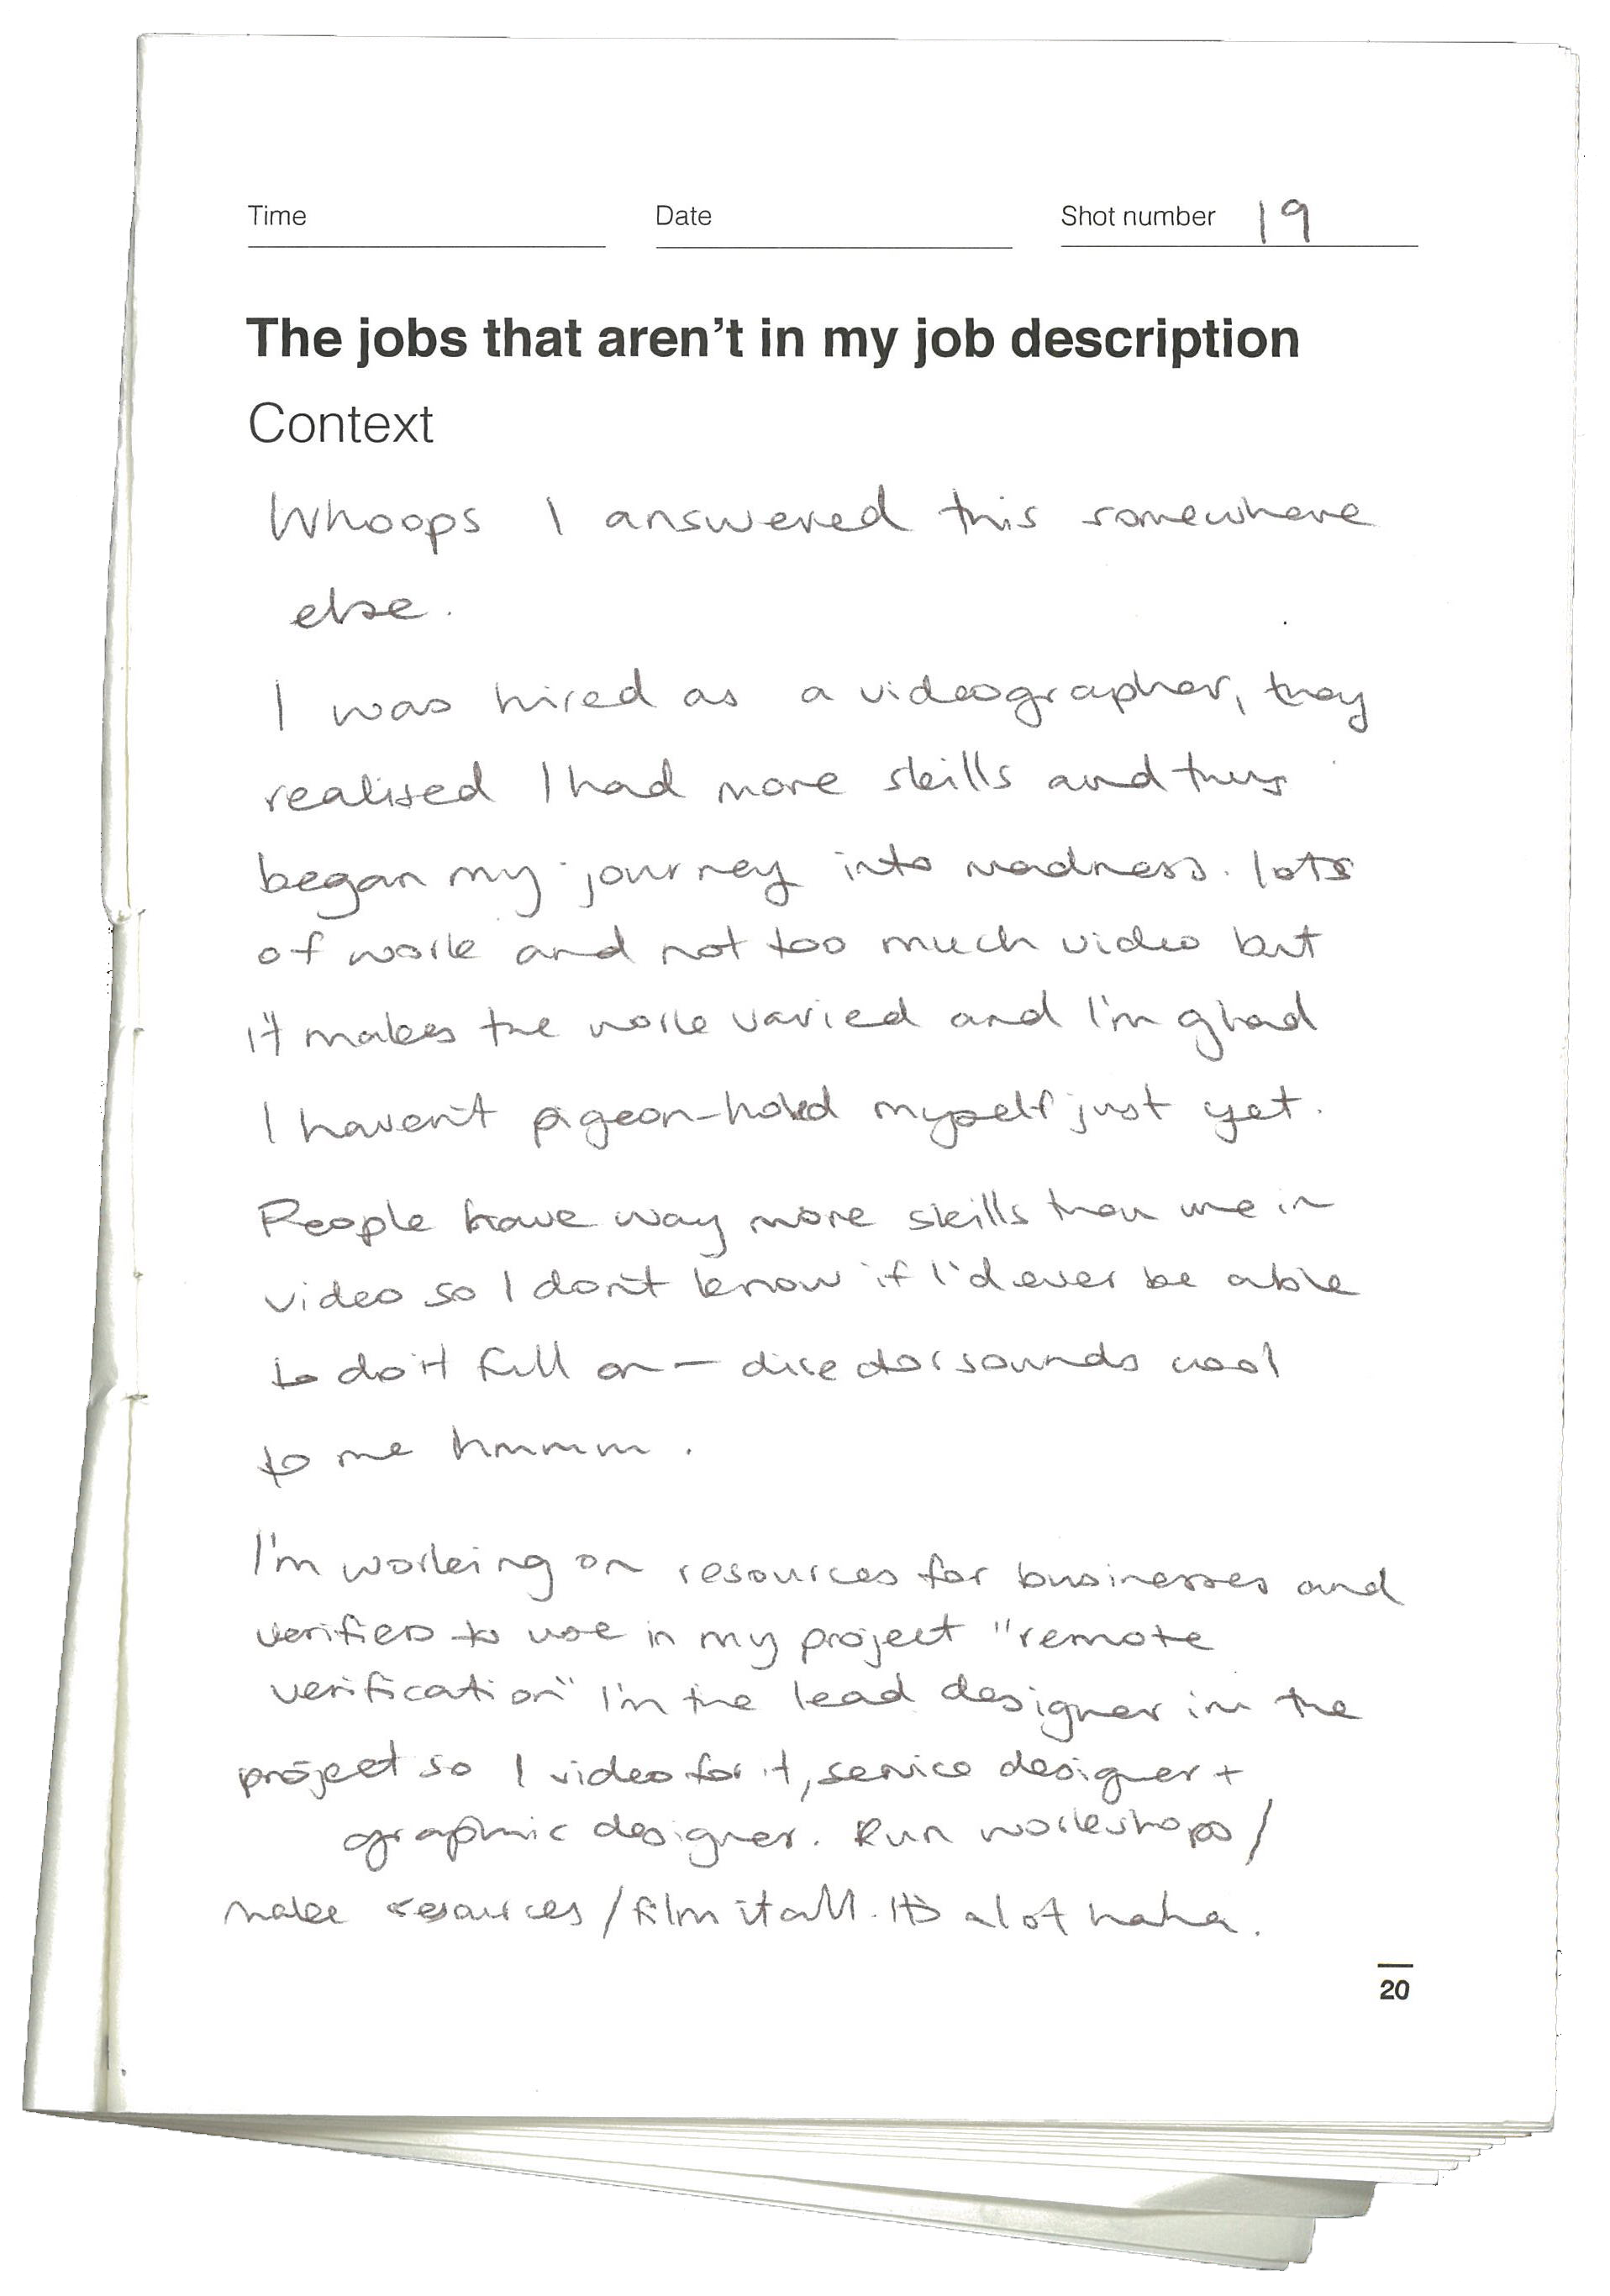 Time Date Shot number 19
The jobs that aren't in my job description
Context
Whoops I answered this somewhere
else.
I was hired as a videographer, they
realised I had more skills and thus
began my journey into madness. lots
of work and not too much video but
it makes the work varied and I'm glad
I haven't pigeon-holed myself just yet.
People have way more skills than me in
video so I don't know if I'd ever be able
to do it full on — director sounds cool
to me hmmmm.
I'm working on resources for businesses and
verifiers to use in my project "remote
verification" I'm the lead designer in the
project so I video for it, service designer +
graphic designer. Run workshops/
make resources/film it all. It's a lot haha.
20